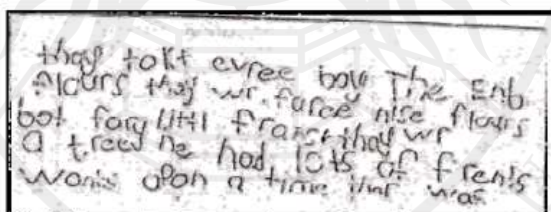 thay tokt evree boW The Enb
flours thay wr. faree nise flours
bot fory littl franss thay wr
a treed he had lots of frents
wons apon a time thar was